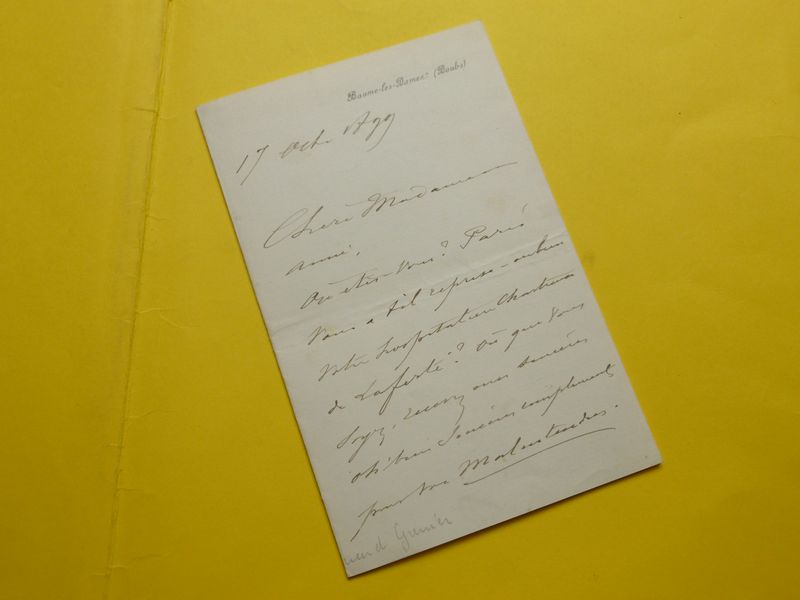 Baume-les-Dames (Doubs)
17 Octe
Chère Madame
amie,
Où êtes-vous? Paris
vous a t il reprise - ou bien
votre hospitalière Chartreuse
de Laferté? Où que vous
soyez, recevez mes sincères
et bien sincères compliments
pour vos Malentendus.
Grenier